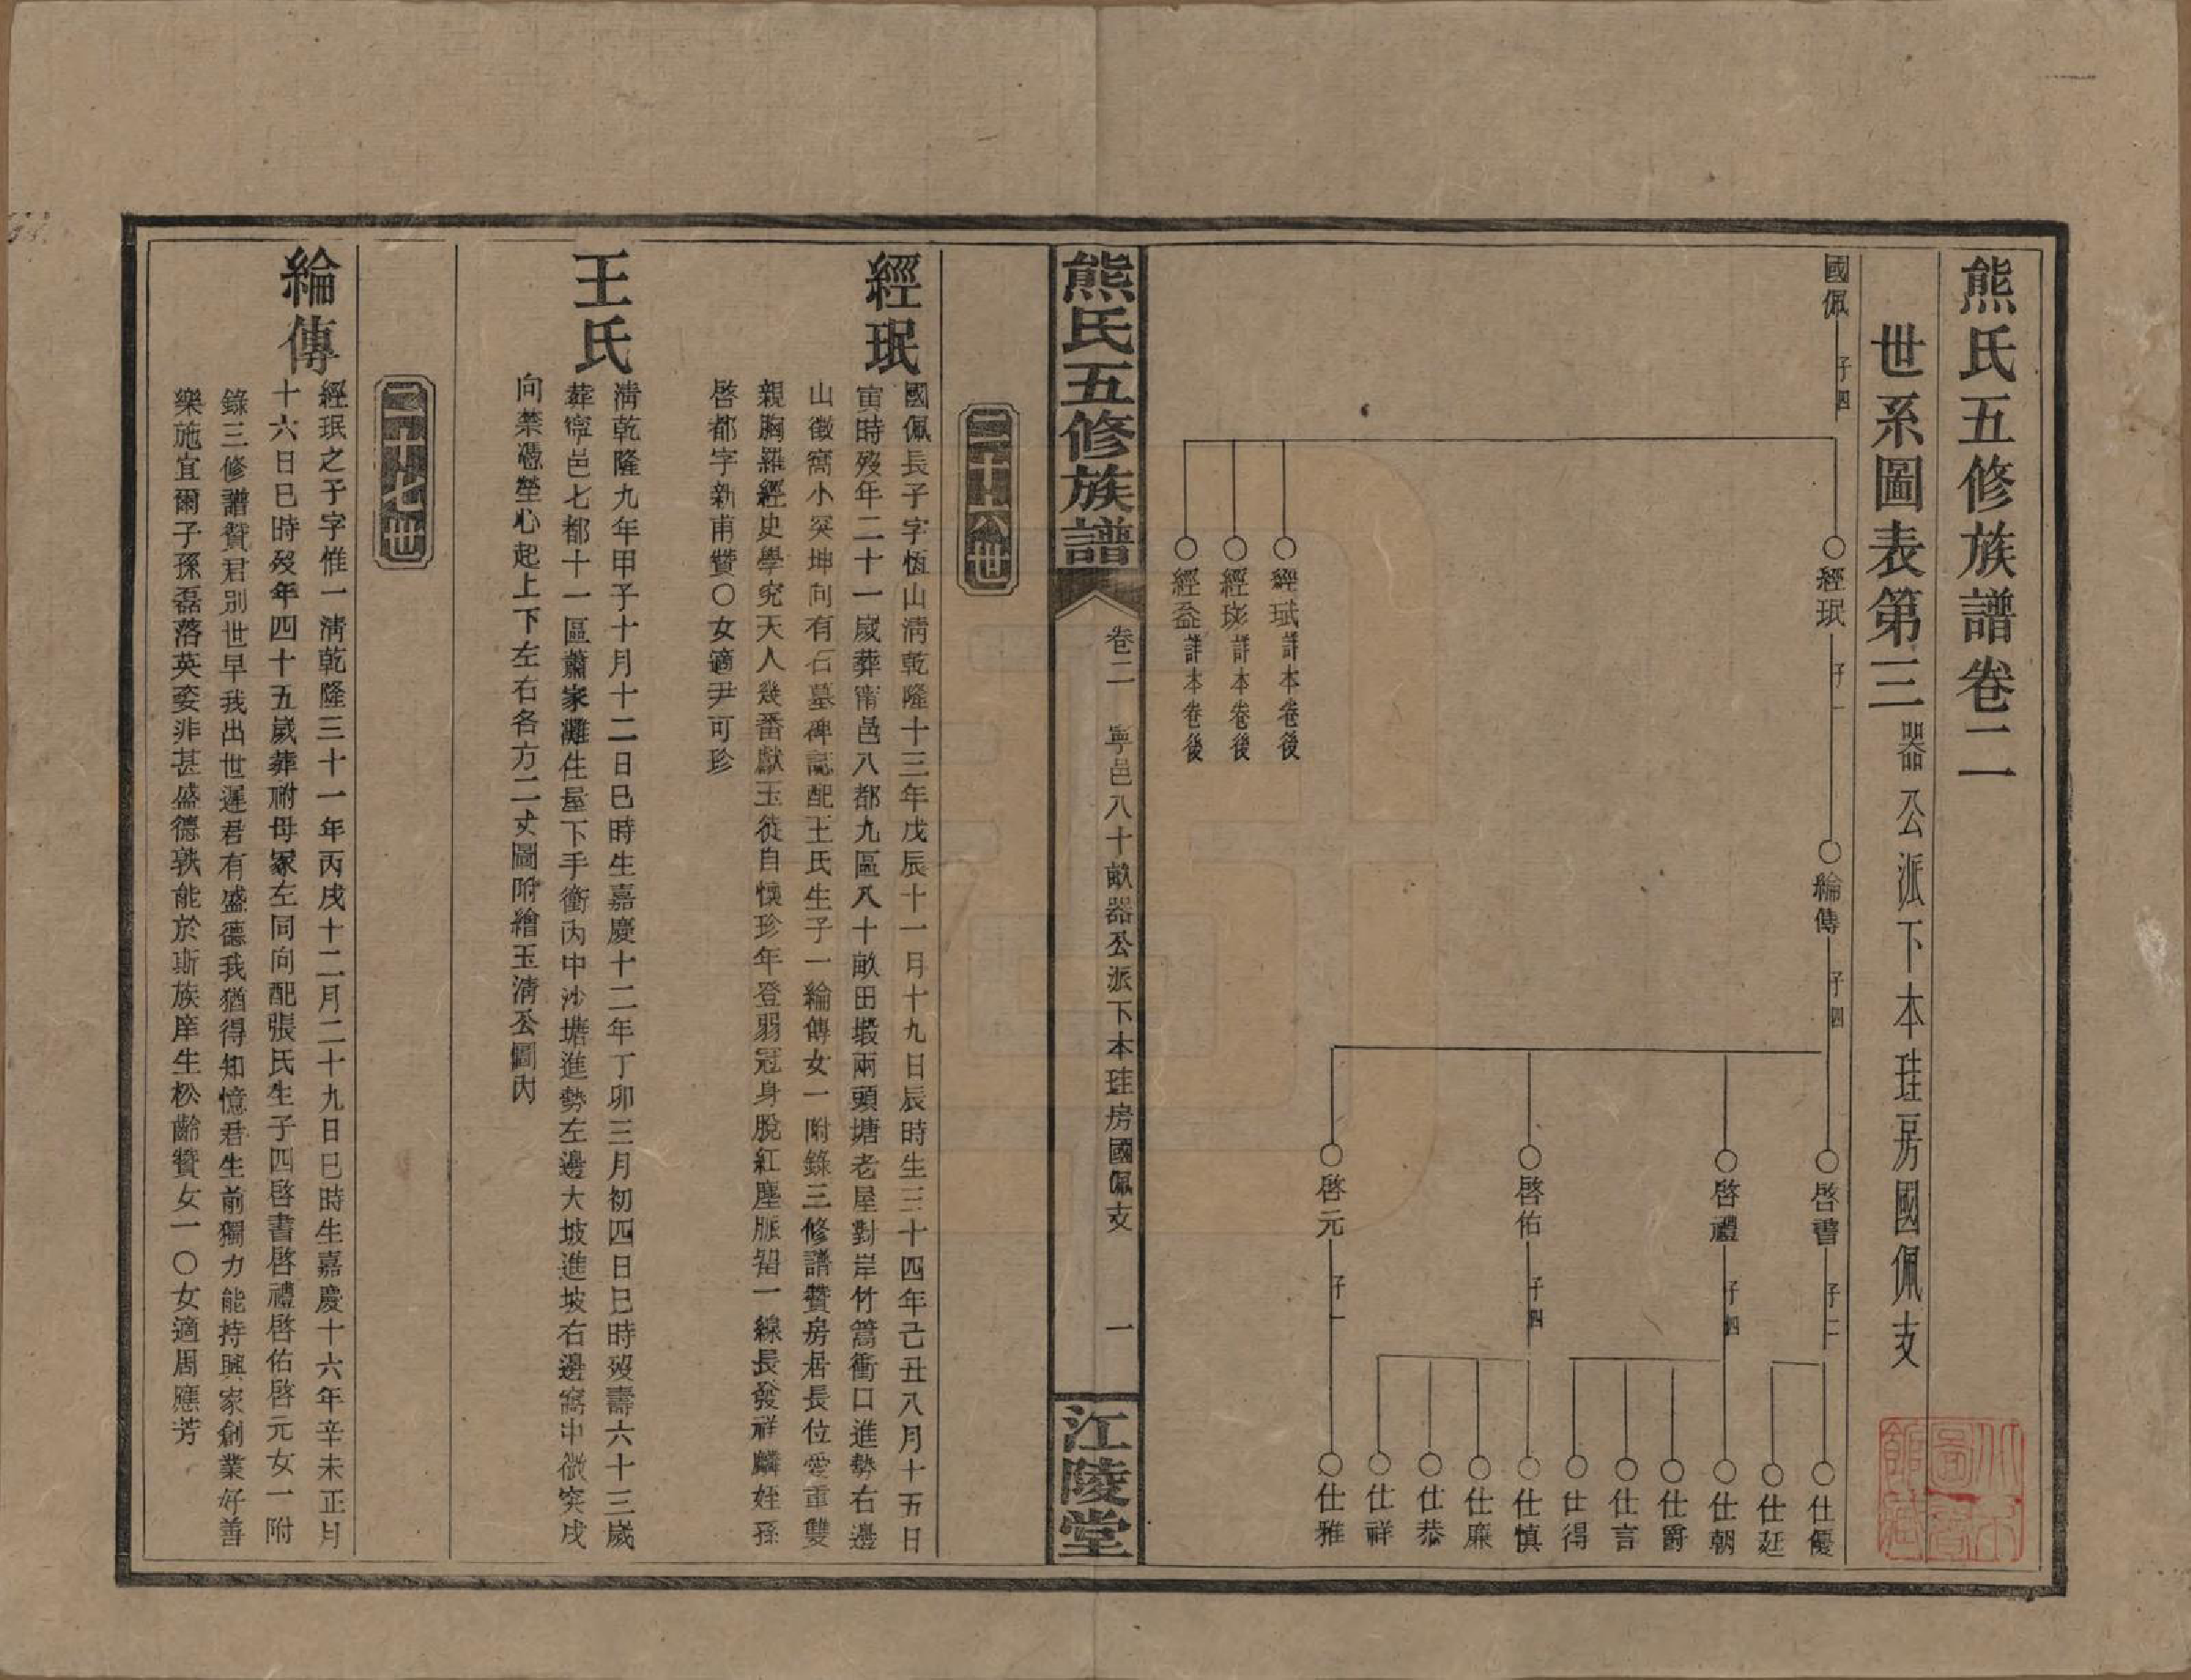 熊氏五修族譜卷二
世系圖表第三 器公派下本珪房國佩支
國佩 子四
經珉 子一
經珷 詳本卷後
經璣 詳本卷後
經益 詳本卷後
綸傳 子四
啓書 子二
啓禮 子四
啓佑 子四
啓元 子一
仕優
仕廷
仕朝
仕爵
仕言
仕得
仕慎
仕廉
仕恭
仕祥
仕雅
熊氏五修族譜 卷二 寧邑八十畝器公派下本珪房國佩支 一 江陵堂
二十六世
經珉
國佩長子字恆山清乾隆十三年戊辰十一月十九日辰時生三十四年己丑八月十五日
寅時歿年二十一歲葬甯邑八都九區八十畝田塅兩頭塘老屋對岸竹篙衝口進勢右邊
山微窩小突坤向有石墓碑誌配王氏生子一綸傳女一附錄三修譜贊房居長位愛重雙
親胸羅經史學究天人幾番獻玉徒自懷珍年登弱冠身脫紅塵脈留一線長發祥麟姪孫
啓都字新甫贊〇女適尹可珍
王氏
清乾隆九年甲子十月十二日巳時生嘉慶十二年丁卯三月初四日巳時歿壽六十三歲
葬甯邑七都十一區蕭家灘住屋下手衝內中沙塘進勢左邊大坡進坡右邊窩中微突戌
向禁憑塋心起上下左右各方二丈圖附繪玉清公圖內
二十七世
綸傳
經珉之子字惟一清乾隆三十一年丙戌十二月二十九日巳時生嘉慶十六年辛未正月
十六日巳時歿年四十五歲葬祔母冢左同向配張氏生子四啓書啓禮啓佑啓元女一附
錄三修譜贊君別世早我出世遲君有盛德我猶得知憶君生前獨力能持興家創業好善
樂施宜爾子孫磊落英姿非甚盛德孰能於斯族庠生松齡贊女一〇女適周應芳